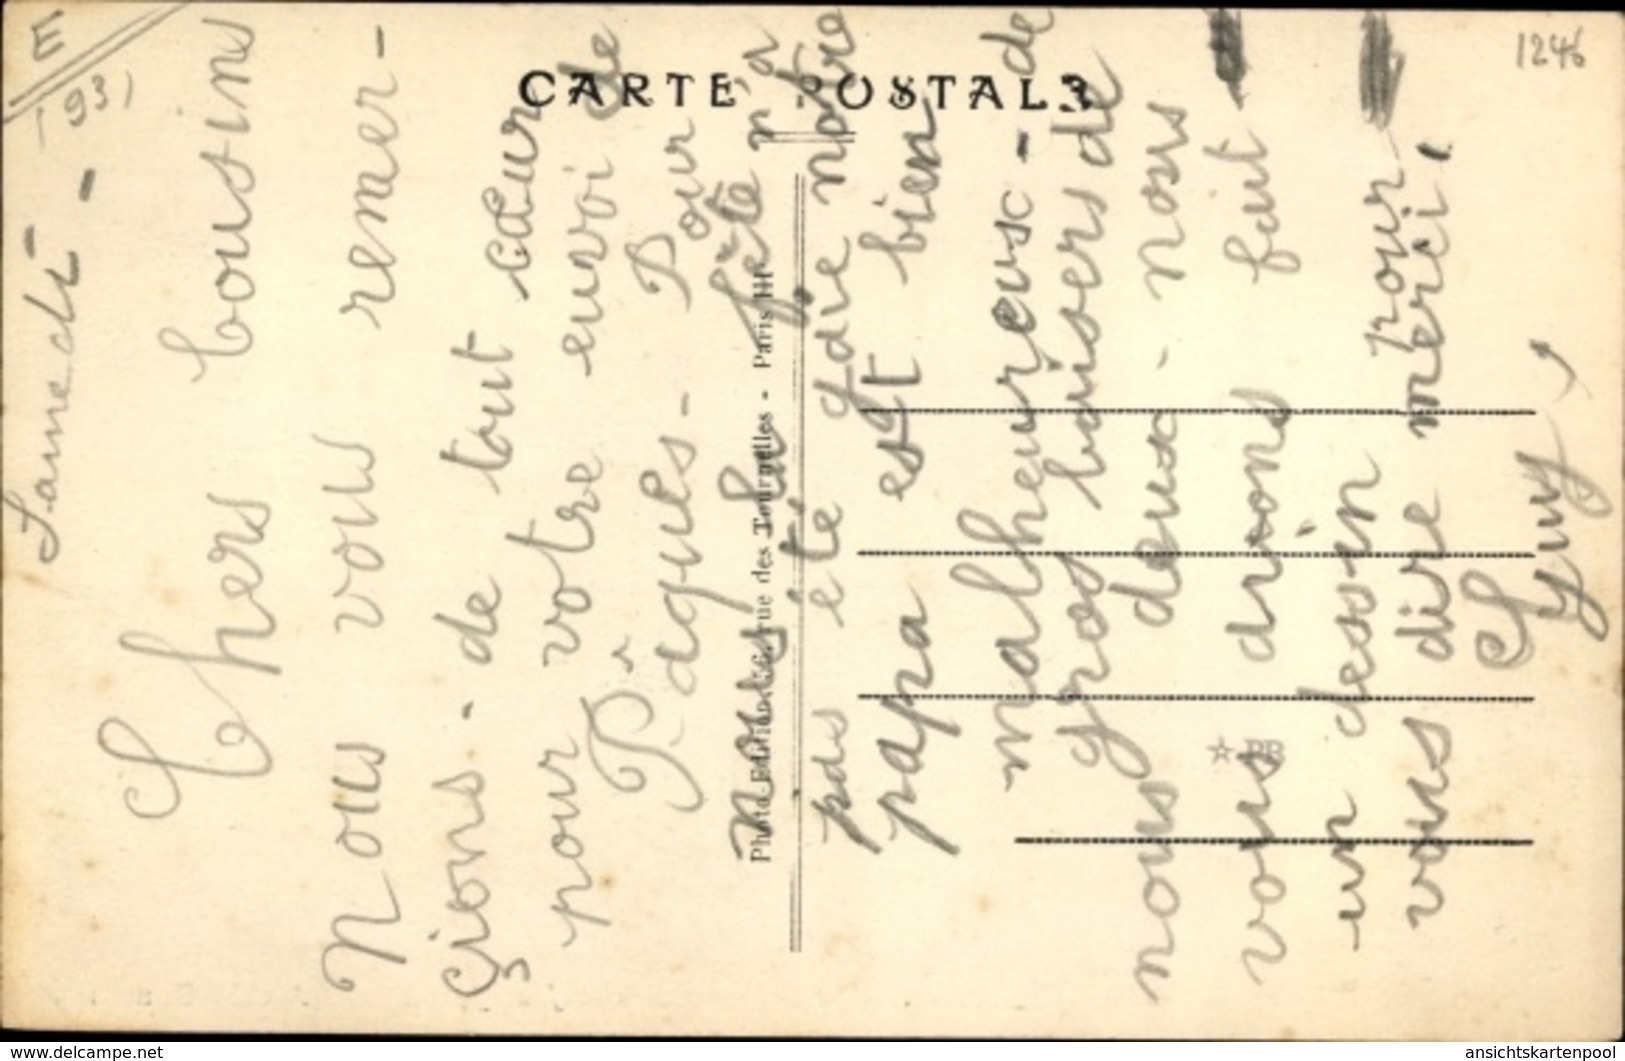 Samedi -
Chers Cousins
Nous vous remer-
çions - de tout cœur
pour votre envoi de
Pâques - Pour
nous la fête n'a
pas été gaie notre
papa est bien
malheureux - de
gros baisers de
nous deux - nous
vous avons fait
un dessin pour
vous dire merci,
Guy
CARTE POSTALE
Photo-Edition
rue des Tournelles - Paris III
E
(93)
1246
www.delcampe.net
ansichtskartenpool